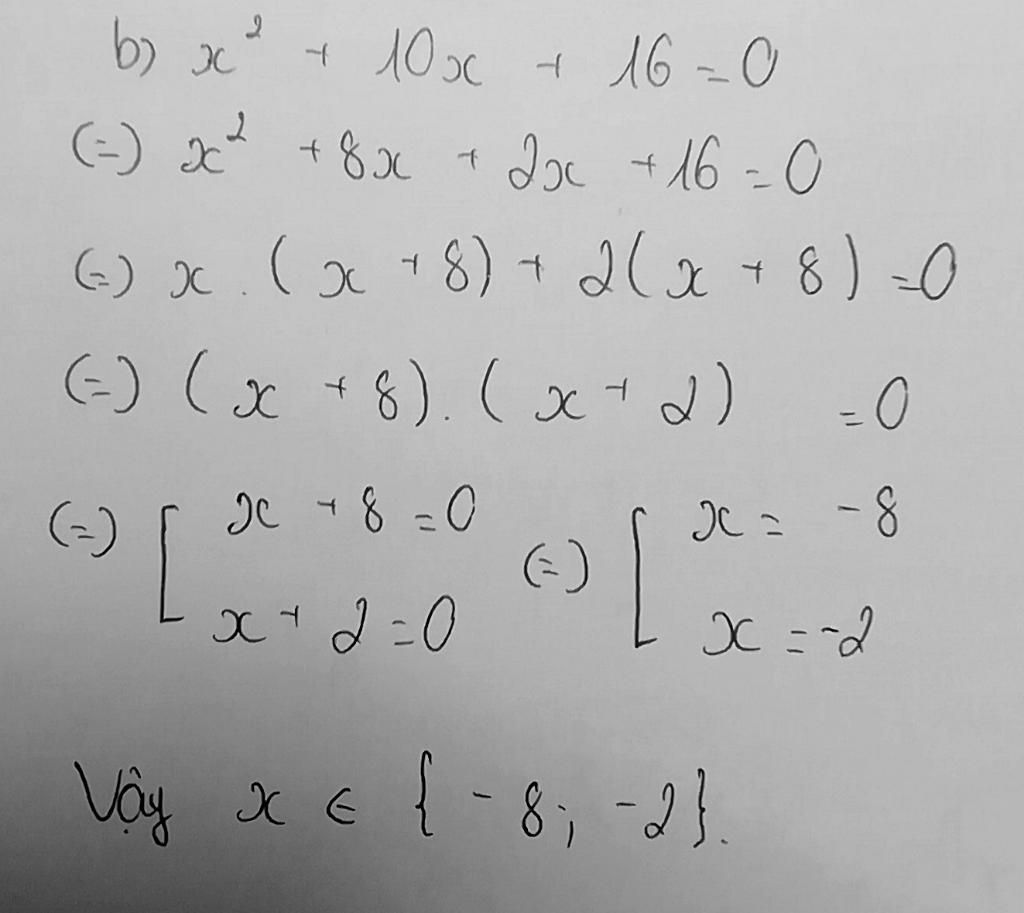 b) x² + 10x + 16 = 0
(=) x² + 8x + 2x + 16 = 0
(=) x . ( x + 8) + 2( x + 8 ) = 0
(=) ( x + 8). ( x + 2) = 0
(=) [ x + 8 = 0 (=) [ x = - 8
x + 2 = 0 x = -2
Vậy x ∈ { - 8; -2}.